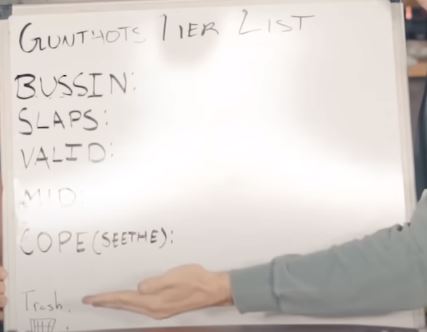 GUNTHOTS TIER LIST
BUSSIN:
SLAPS:
VALID:
MID:
COPE (SEETHE):
Trash: